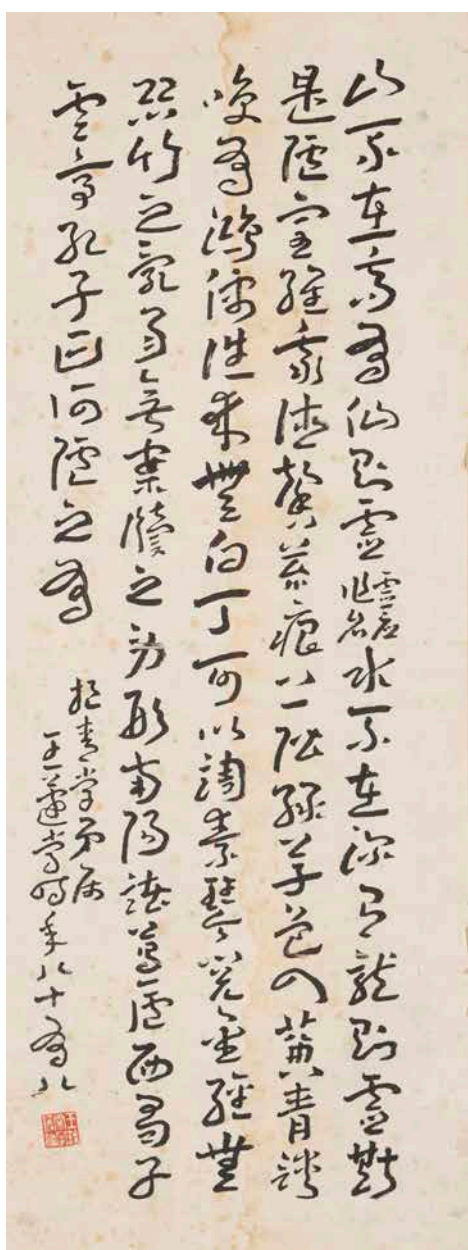 山不在高有仙則靈靈應作名水不在深有龍則靈斯
是陋室維吾德馨苔痕上階綠草色入簾青談
咲有鴻儒往來無白丁可以調素琴閱金經無
絲竹之亂耳無案牘之勞形南陽諸葛廬西蜀子
雲亭孔子曰何陋之有
青堂弟屬
王蘧常時年八十有八